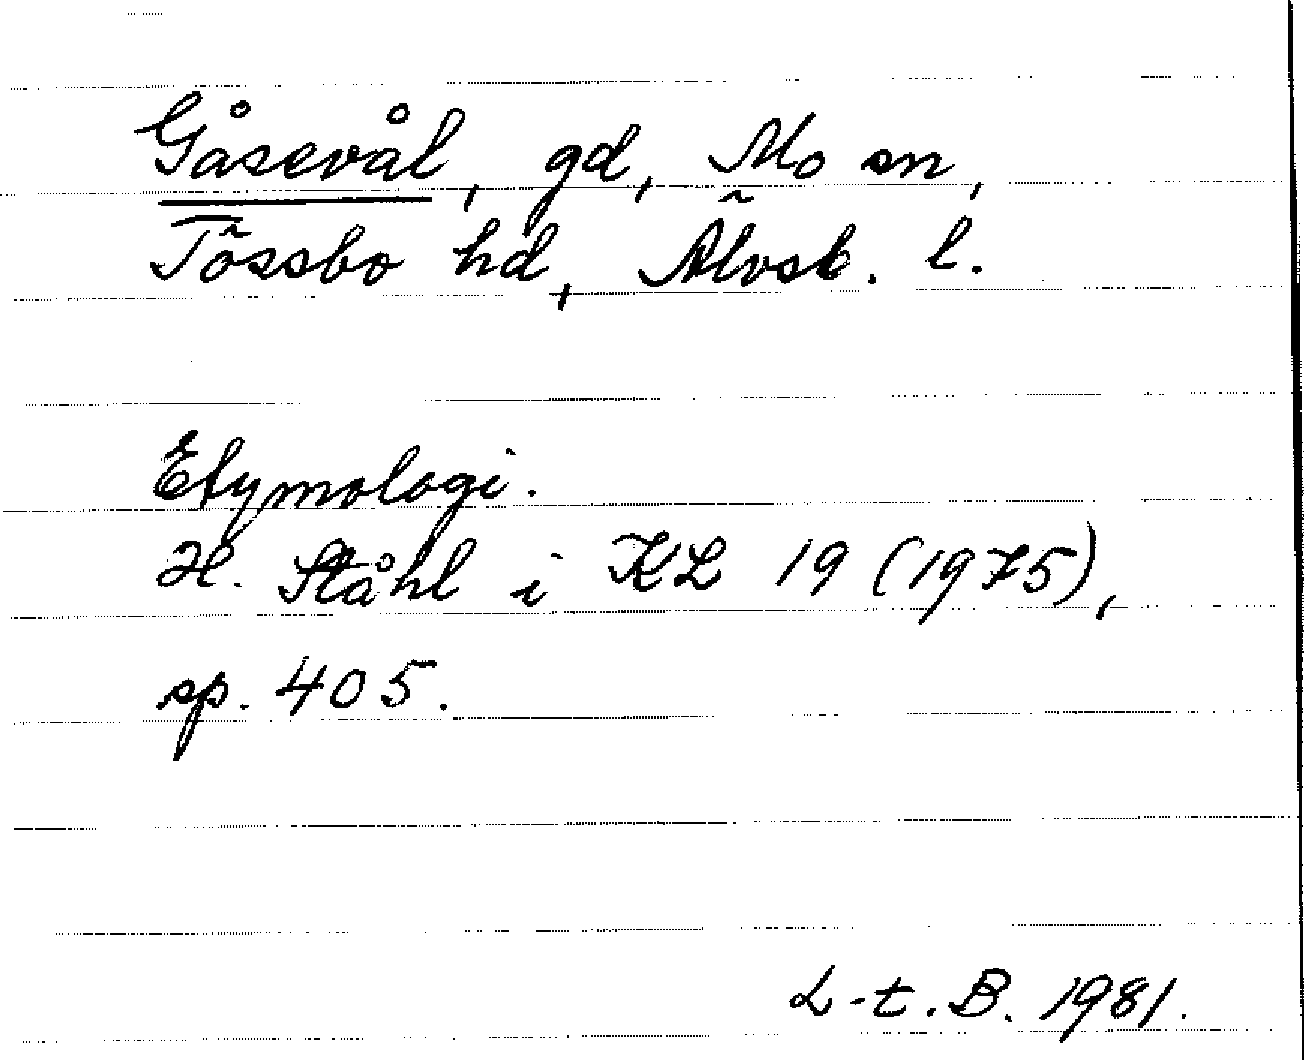 Gåsevål, gd, Mo sn,
Tössbo hd, Älvsb. l.
Etymologi.
H. Ståhl i KL 19 (1975),
sp. 405.
L-t. B. 1981.